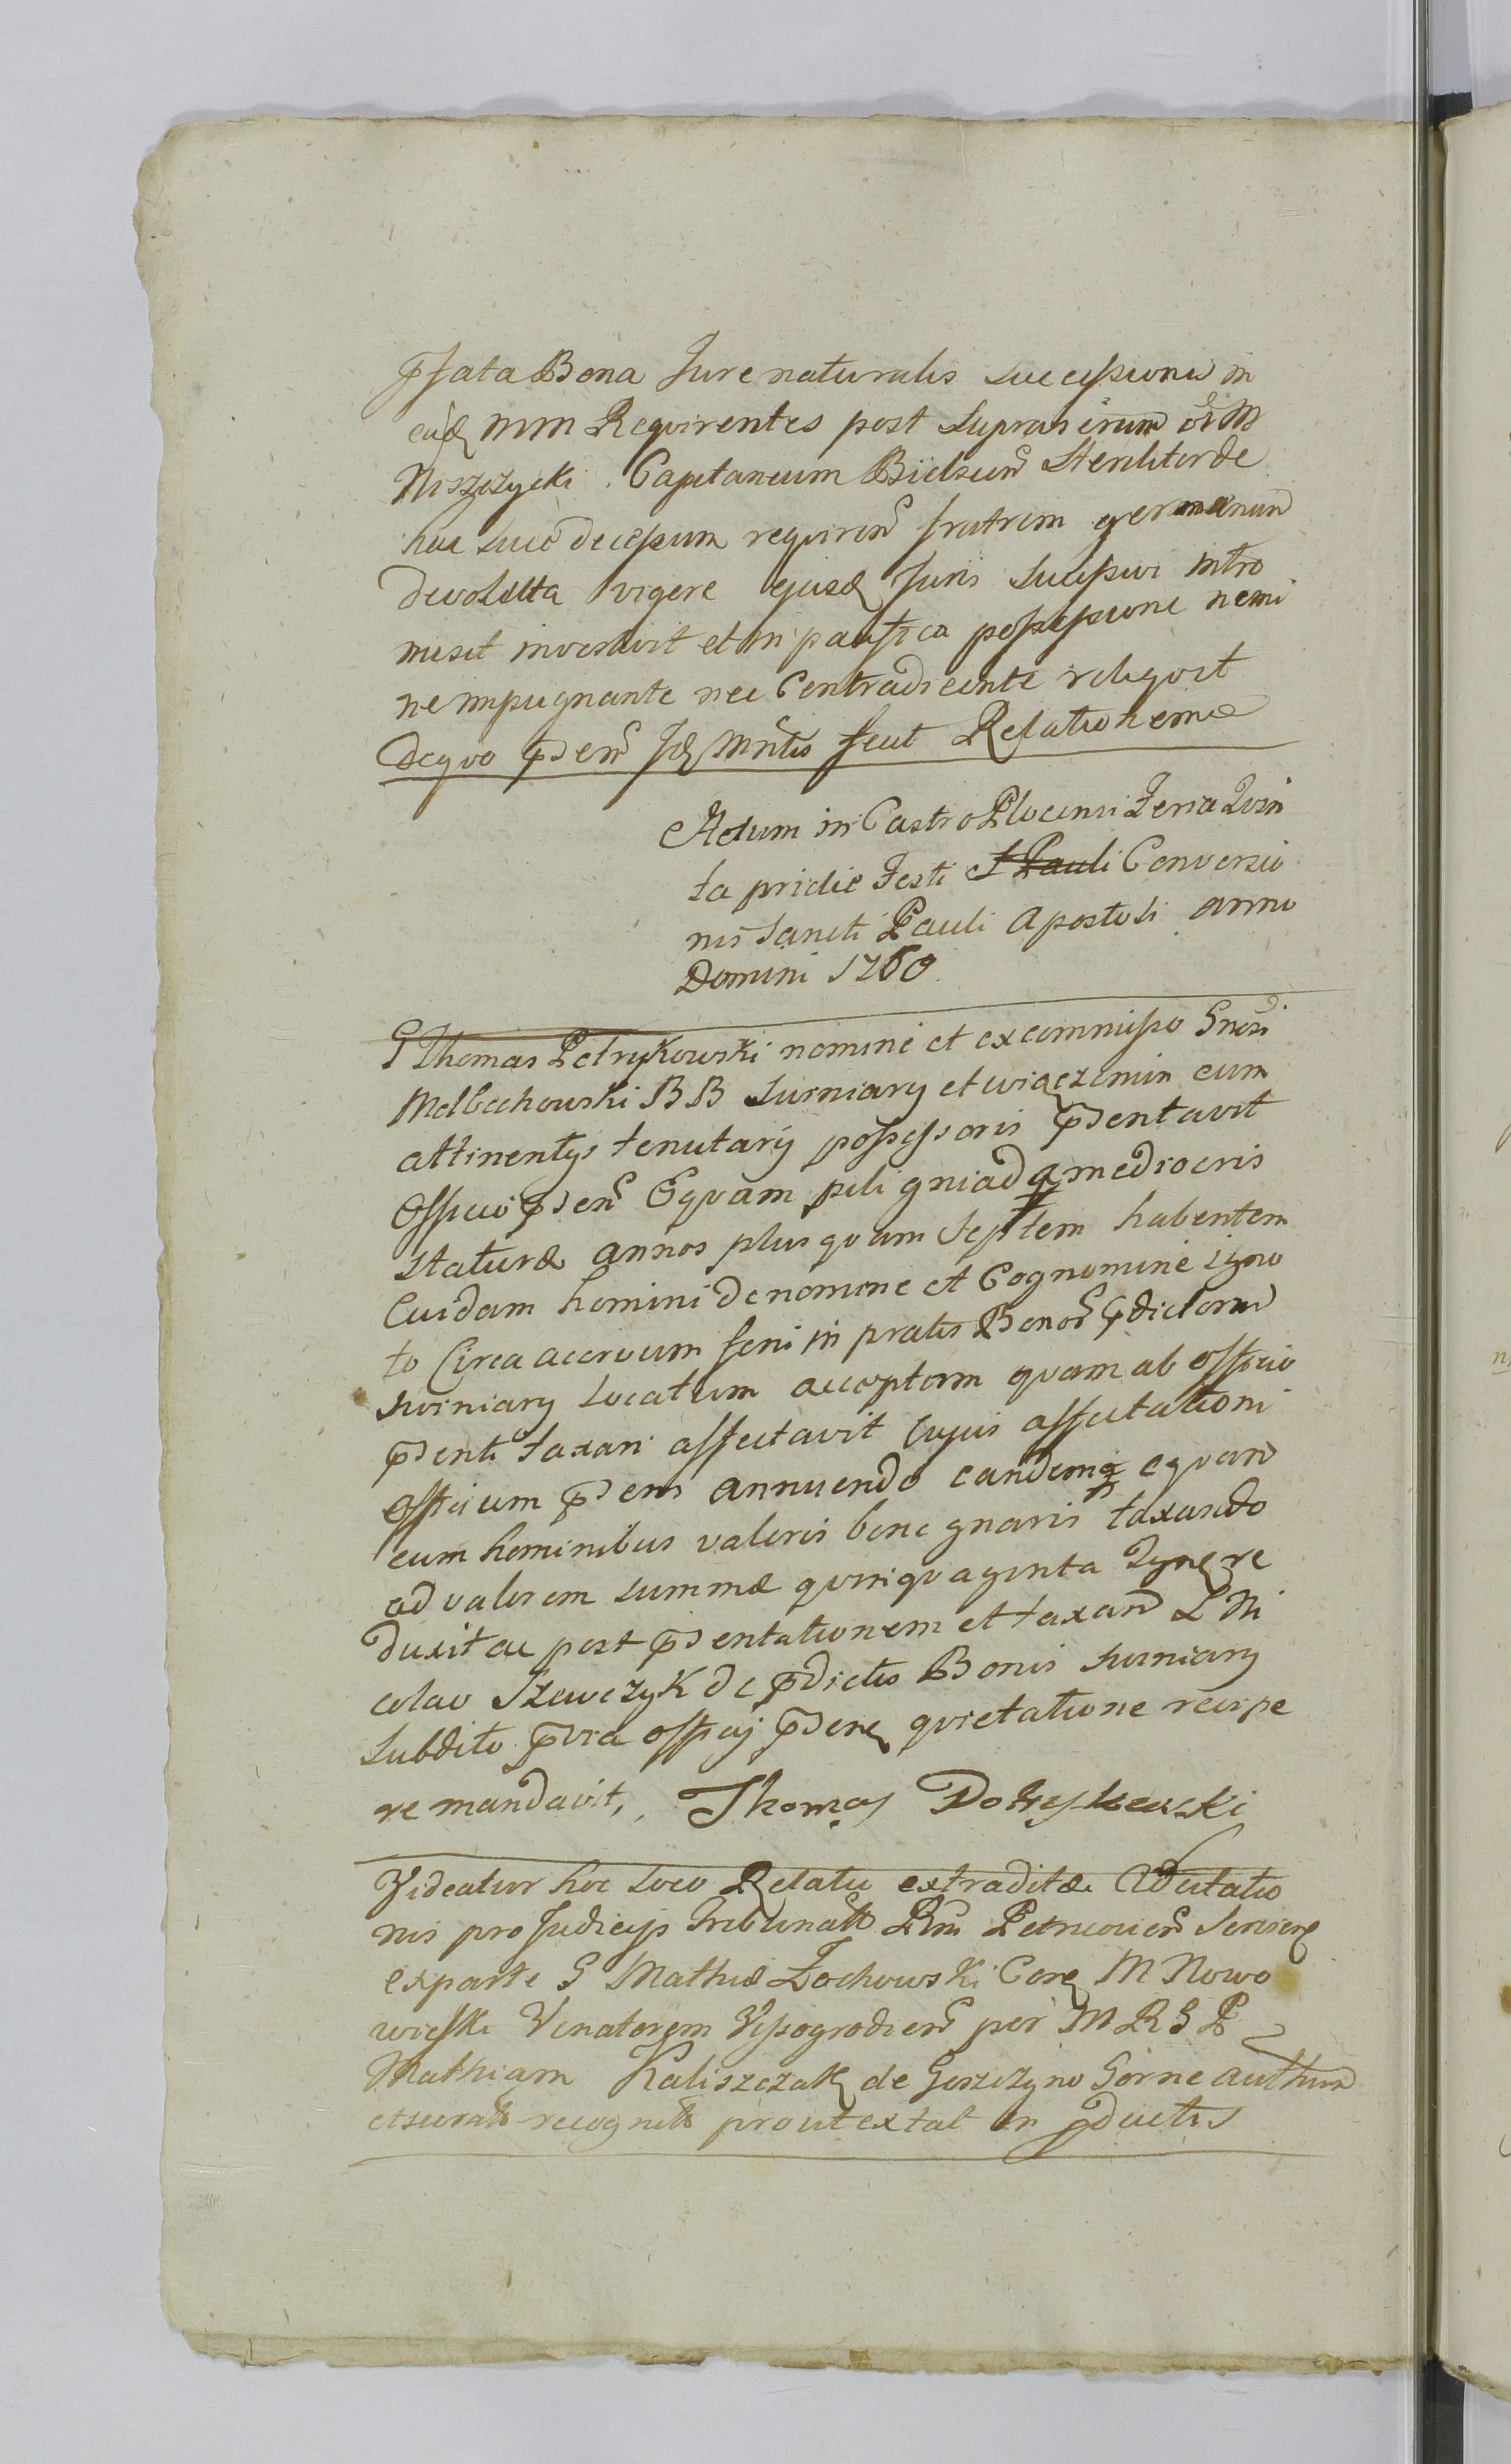 Pfata Bona Jure naturalis successionis in
eosd MM Reqvirentes post supra
Niszczycki Capitaneum Bielscen Steriliter de
hac luce decessum reqviren fratrem germanum
devoluta vigore ejusd Juris successivi intro
misit investivit et in pacifica possessione nemi
ne impugnante nec Contradicente reliqvit
de qvo psen Id Mntis fecit Relationem
Actum in Castro Plocensi Feria Qvin
ta pridie Festi S Pauli Conversio
nis Sancti Pauli Apostoli anno
Domini 1760
G Thomas Petrykowski nomine et ex commisso Gnosi
BB Surniary et cum
attinentys tenutarij possessoris psentavit
Officio psen Eqvam pili gniada mediocris
staturæ annos plus qvam septem habentem
Cuidam homini de nomine et Cognomine igno
to Circa acervum feni in pratis Bonor pdictorum
Surniary locatum acceptam qvam ab officio
psenti taxari affectavit Cujus affectationi
officium psens annuendo eandemq eqvam
cum hominibus valoris bene gnaris taxando
ad valorem summæ qvinqvaginta Tynf re
duxit ac post psentationem et taxam L Ni
colao Szewczyk de pdictis Bonis Surniary
subdito pvia officij psen qvietatione recipe
re mandavit, Thomas Potrykowski
Videatur hoc loco Relatio extraditæ Citationis
nis pro Judicijs Tribunalis Rni Petricovien
ex parte G Mathiæ Zochowski Cor M Nowo
wieski Venatorem Vissogrodien per M R G R
Mathiam Kaliszczak de Goszczyno Gorne authum
et jurat recognit prout extat in pductis